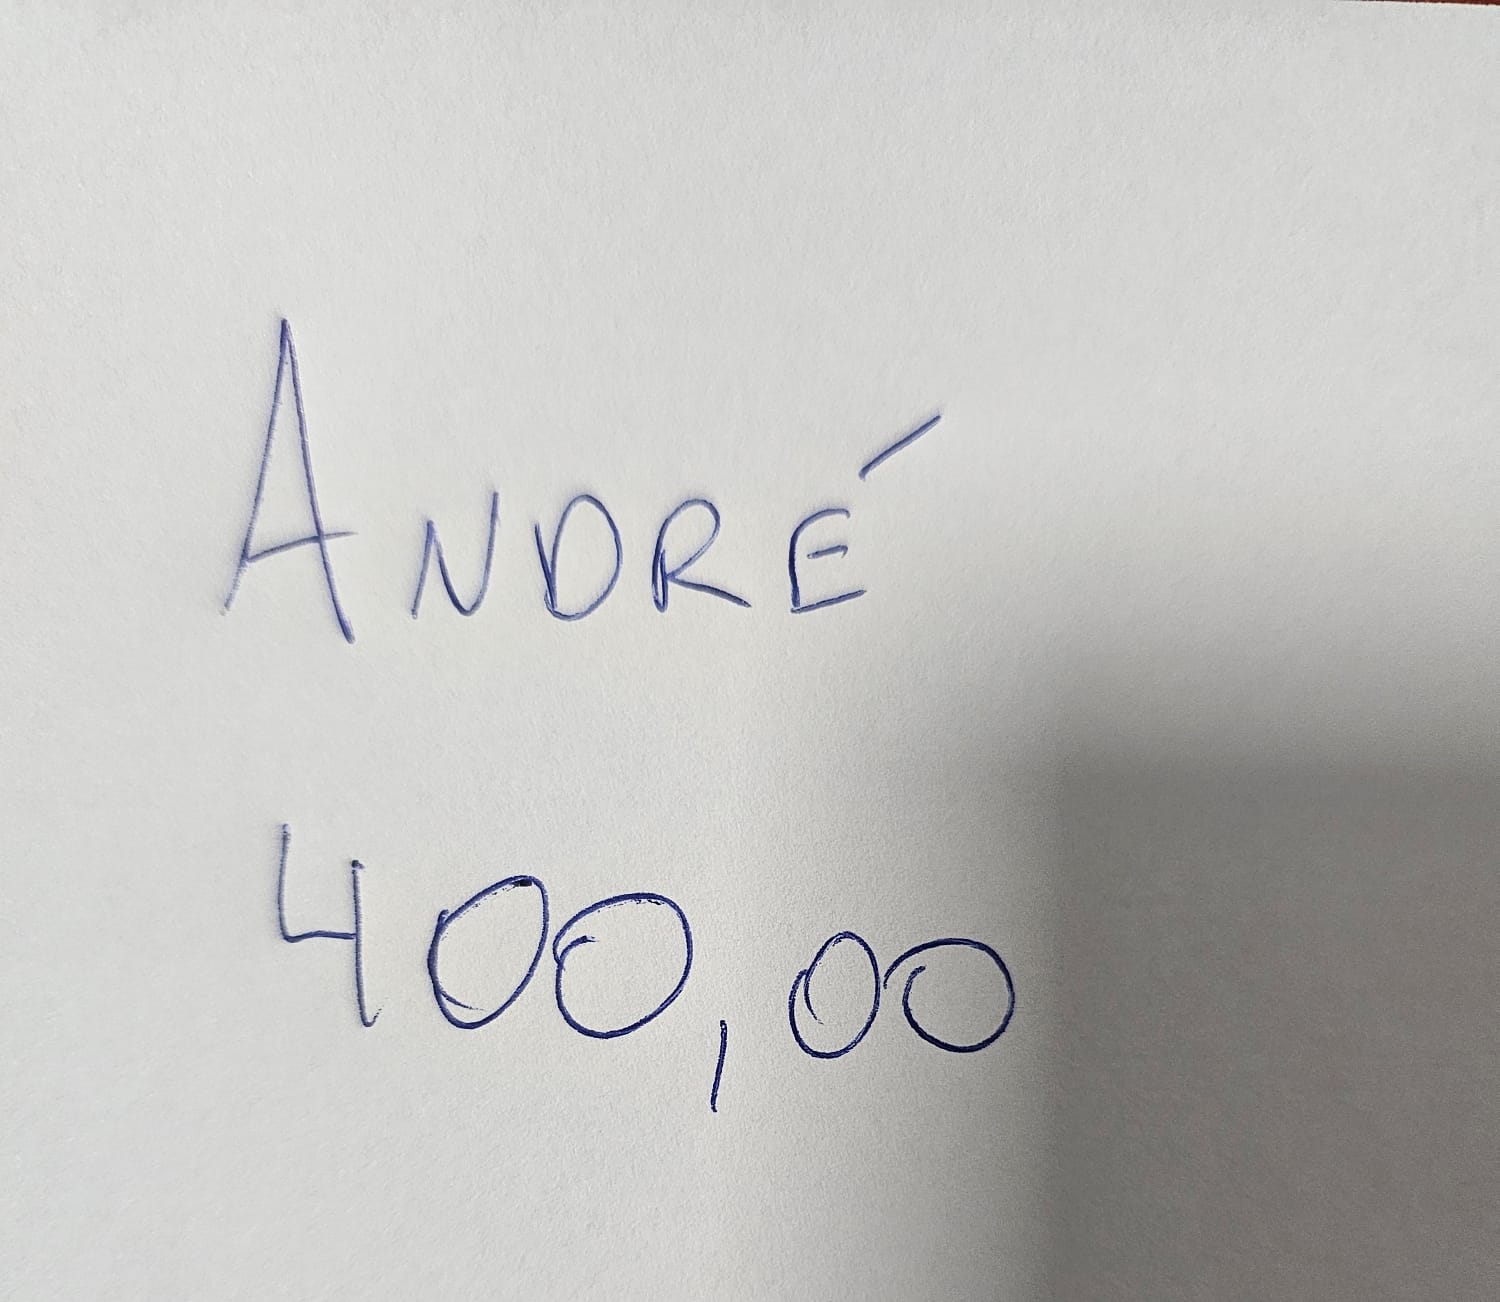 ANDRÉ
400,00